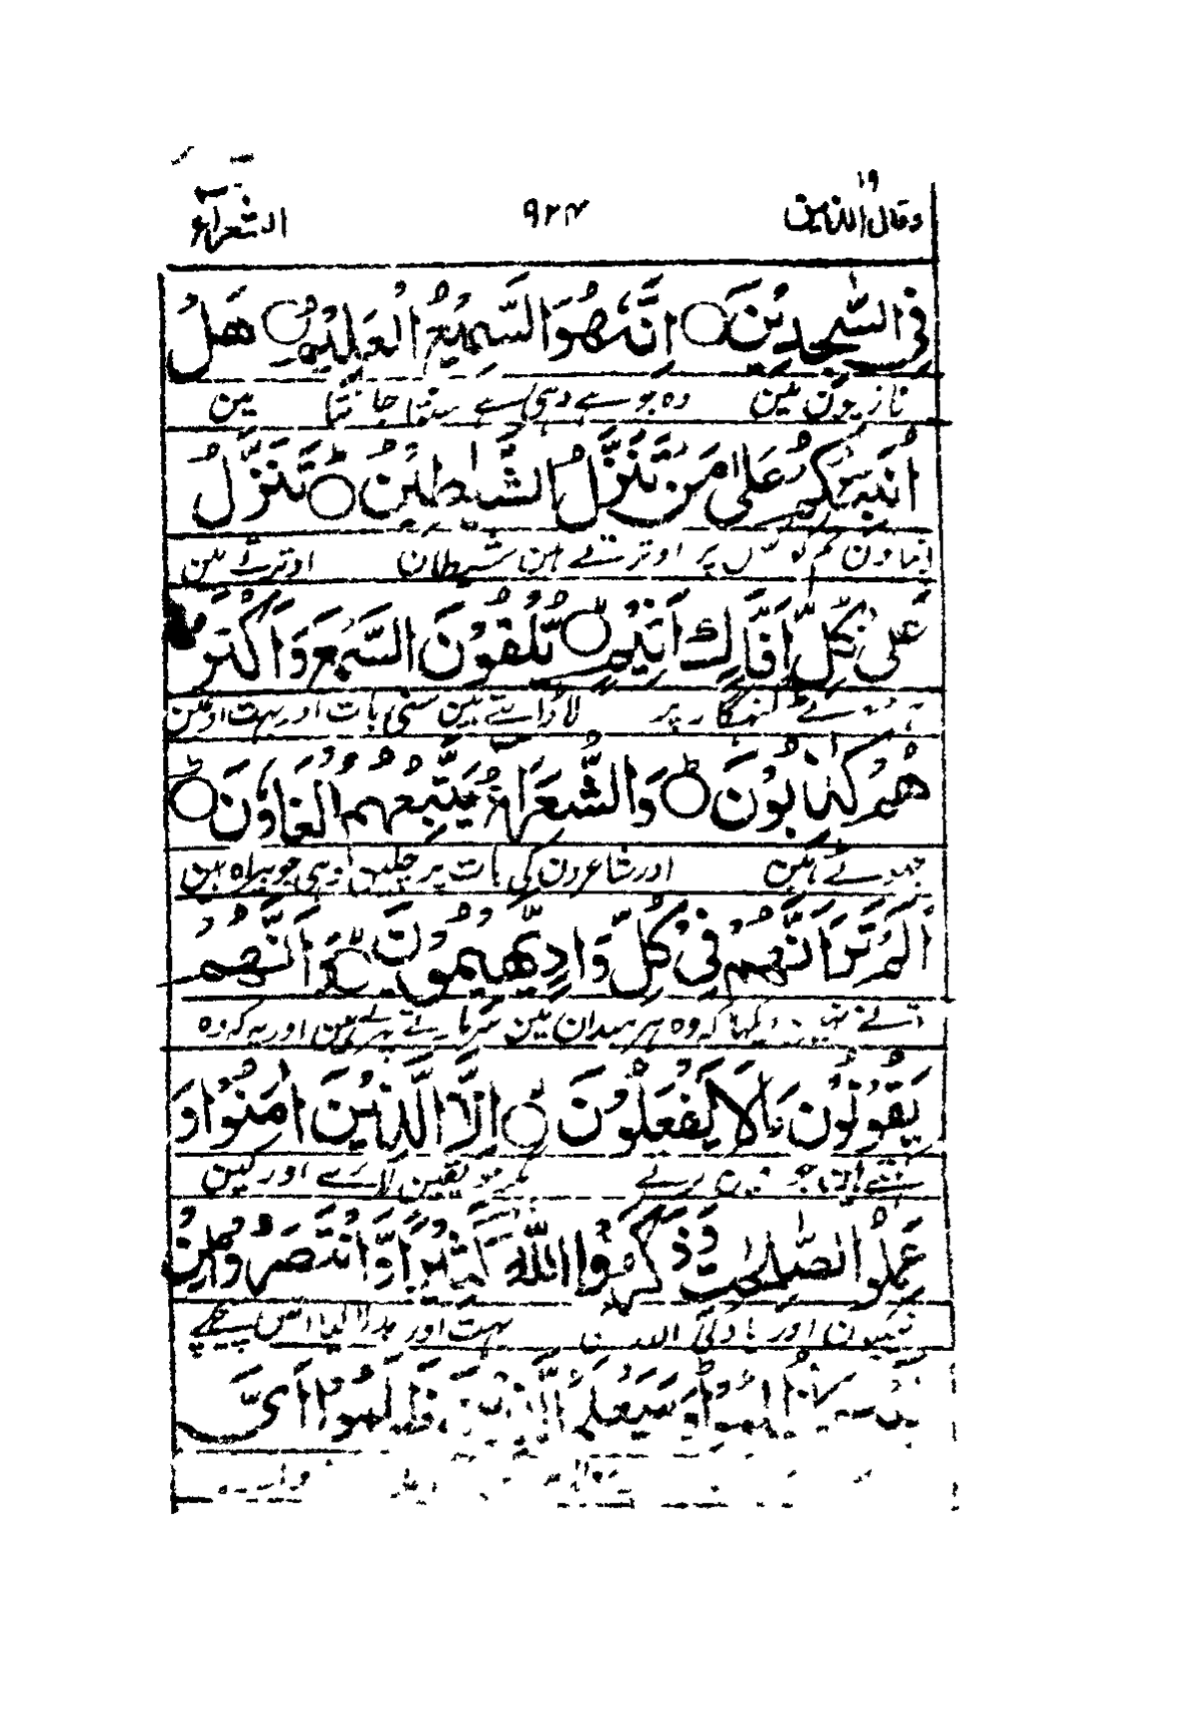 وقال الذین ۱۹ ۹۲۴ الشعرآء
فِی السّٰجِدِیْنَ ○ اِنَّهٗ هُوَ السَّمِیْعُ الْعَلِیْمُ ○ هَلْ
نمازیون مین وہ جو ہے وہی ہے سنتا جانتا مین
اُنَبِّئُكُمْ عَلٰی مَنْ تَنَزَّلُ الشَّیٰطِیْنُ ○ؕ تَنَزَّلُ
بتاون تم کو کس پر اوترتے ہین شیطان اوترتے ہین
عَلٰی كُلِّ اَفَّاكٍ اَثِیْمٍ ○ۙ یُّلْقُوْنَ السَّمْعَ وَاَكْثَرُ
گنہگار پر لا ڈالتے ہین سنی بات اور بہت اونمین
هُمْ كٰذِبُوْنَ ○ؕ وَالشُّعَرَآءُ یَتَّبِعُهُمُ الْغَاوٗنَ ○ؕ
جھوٹے ہین اور شاعرون کی بات پر چلین وہی جو بیراہ ہین
اَلَمْ تَرَ اَنَّهُمْ فِیْ كُلِّ وَادٍ یَّهِیْمُوْنَ ○ۙ وَاَنَّهُمْ
تونے نہین دیکہا کہ وہ ہر میدان مین سر مارتے پہرتے ہین اور یہ کہ وہ
یَقُوْلُوْنَ مَا لَا یَفْعَلُوْنَ ○ۙ اِلَّا الَّذِیْنَ اٰمَنُوْا وَ
کہتے ہین جو نہین کرتے مگر جو یقین لائے اور کین
عَمِلُوا الصّٰلِحٰتِ وَذَكَرُوا اللّٰهَ كَثِیْرًا وَّانْتَصَرُوْا مِنْۢ
نیکیان اور یاد کی اللہ بہت اور بدلا لیا اس پیچہے
بَعْدِ مَا ظُلِمُوْاؕ وَسَیَعْلَمُ الَّذِیْنَ ظَلَمُوْۤا اَیَّ